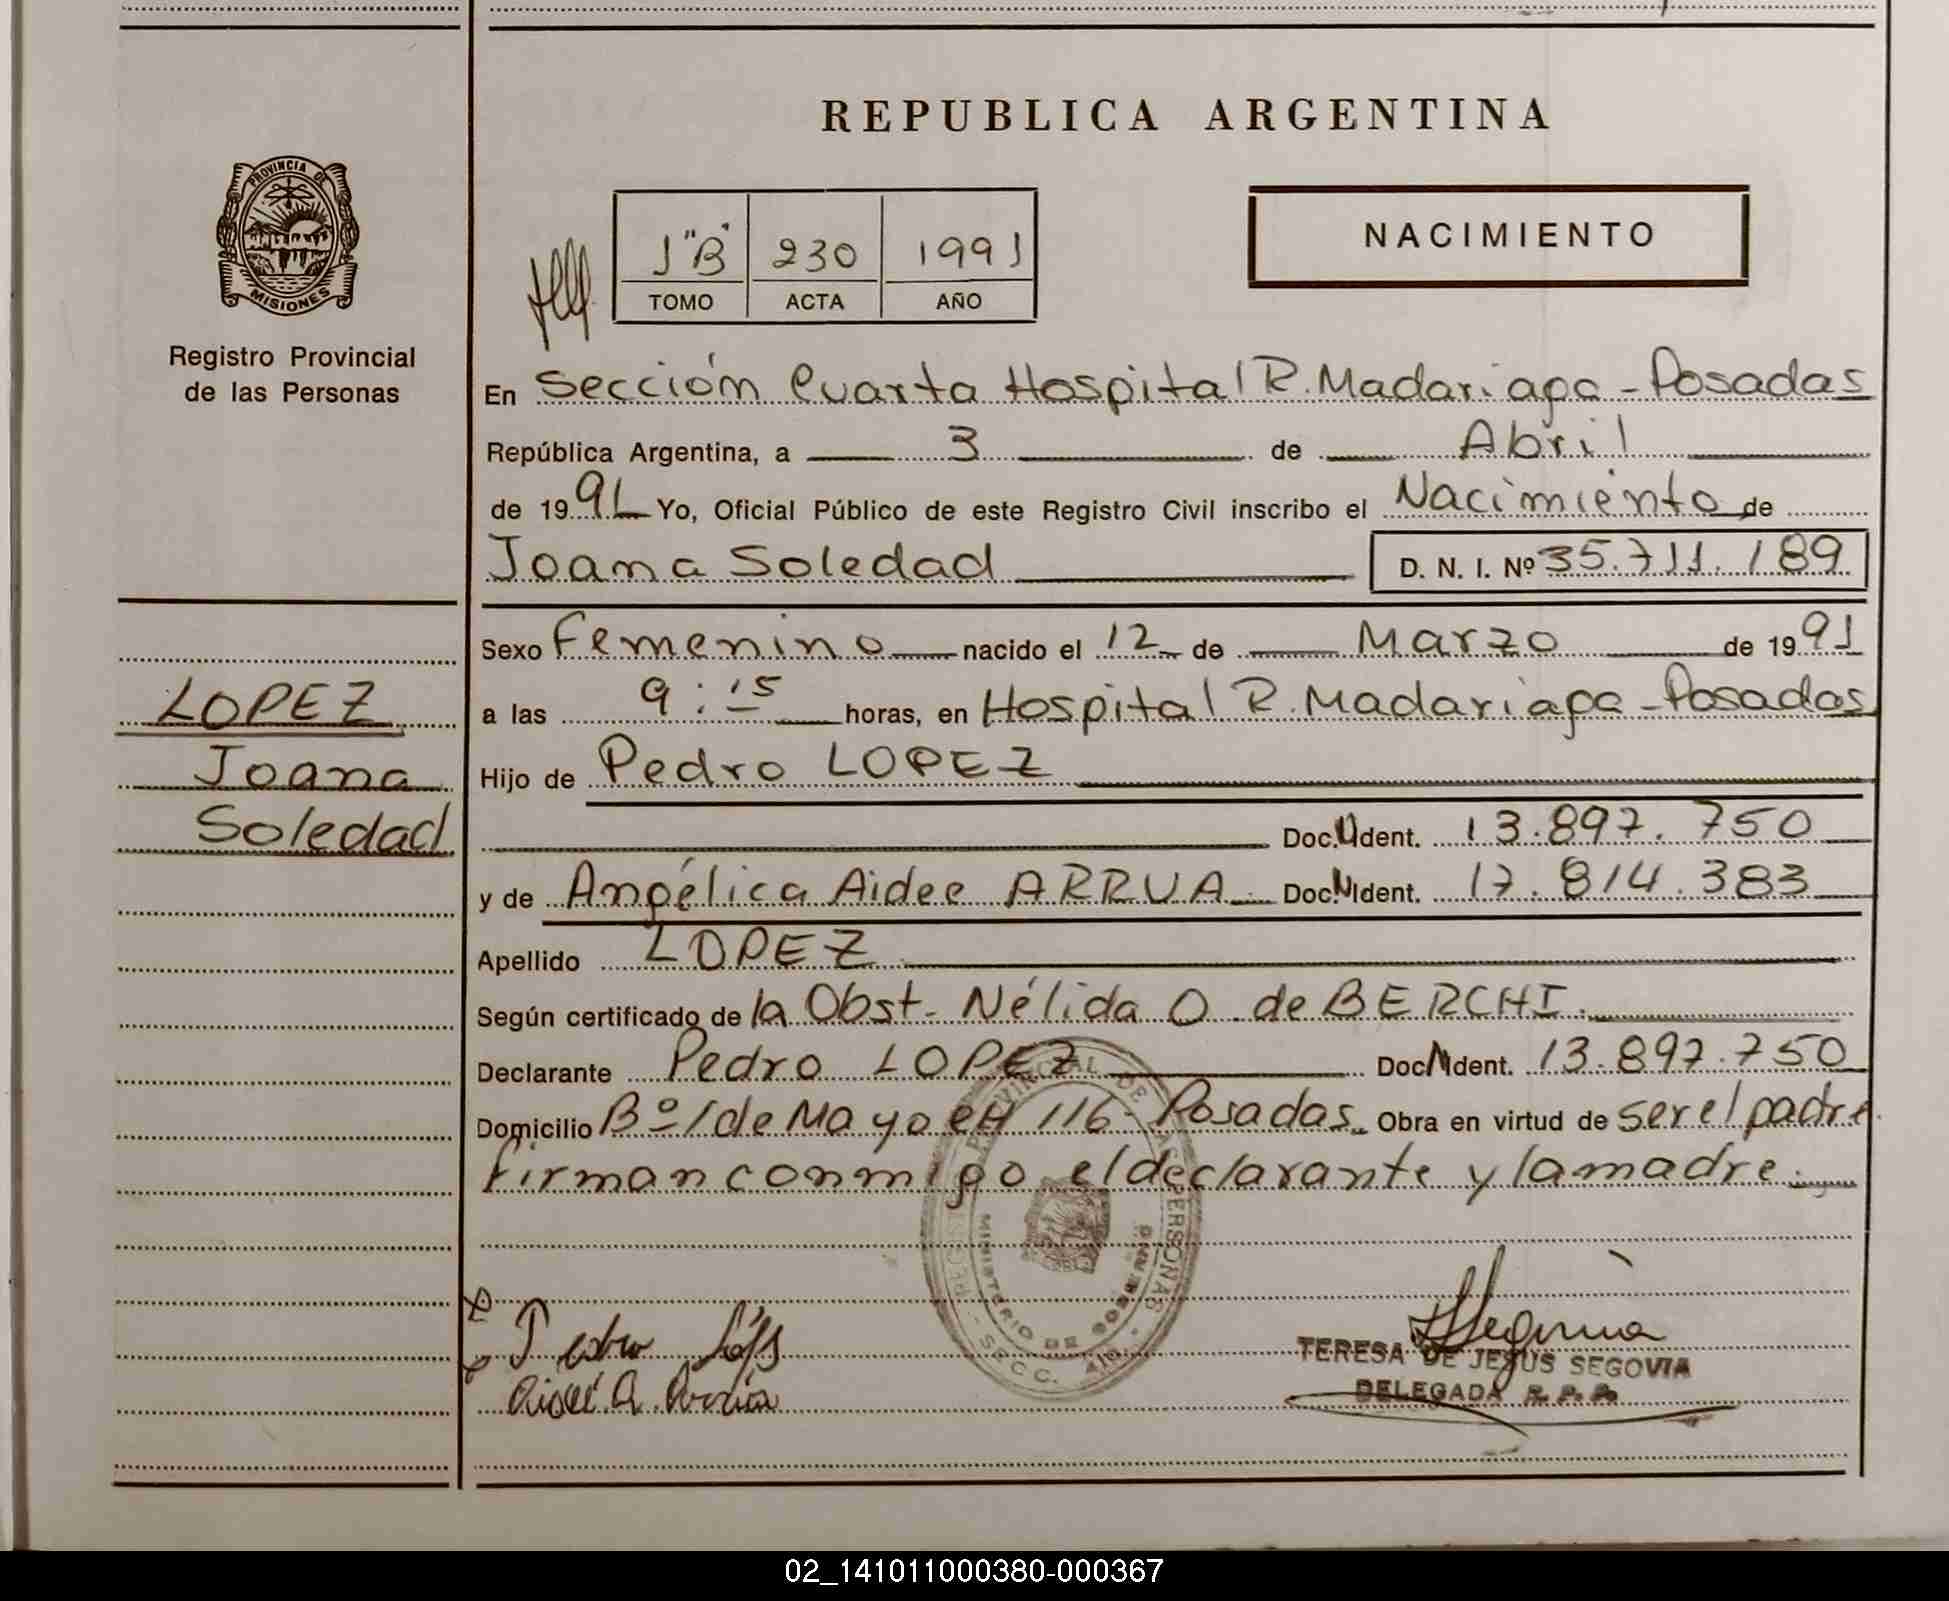 REPUBLICA ARGENTINA
PROVINCIA DE
MISIONES
Registro Provincial
de las Personas
1 "B" 230 1991
TOMO ACTA AÑO
NACIMIENTO
En Sección Cuarta Hospital R. Madariaga - Posadas
República Argentina, a 3 de Abril
de 1991 Yo, Oficial Público de este Registro Civil inscribo el Nacimiento de
Joana Soledad D. N. I. Nº 35.711.189
Sexo Femenino nacido el 12 de Marzo de 1991
a las 9:15 horas, en Hospital R. Madariaga - Posadas
Hijo de Pedro LOPEZ
Doc. N Ident. 13.897.750
y de Angélica Aidee ARRUA Doc. N Ident. 17.814.383
Apellido LOPEZ
Según certificado de la Obst. Nélida O. de BERCHI.
Declarante Pedro LOPEZ Doc N Ident. 13.897.750
Domicilio Bº 1 de Mayo CH 116 - Posadas. Obra en virtud de ser el padre.
Firman conmigo el declarante y la madre.
LOPEZ
Joana
Soledad
REGISTRO PROVINCIAL DE LAS PERSONAS
MINISTERIO DE GOBIERNO
SECC. 4ta.
Pedro López
Aidée A. Arrúa
Segovia
TERESA DE JESUS SEGOVIA
DELEGADA R. P. P.
02_141011000380-000367